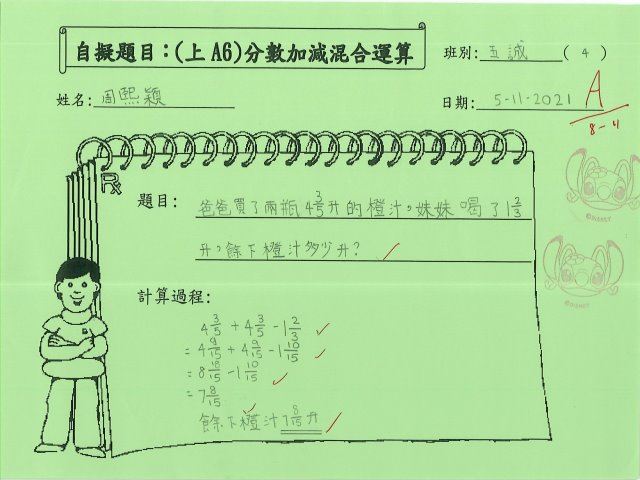 自擬題目：(上 A6)分數加減混合運算
班別: 五誠 ( 4 )
姓名: 周熙穎
日期: 5-11-2021
A
8-11
題目: 爸爸買了兩瓶 4 3/5 升的橙汁，妹妹喝了 1 2/3
升，餘下橙汁多少升?
計算過程:
4 3/5 + 4 3/5 - 1 2/3
= 4 9/15 + 4 9/15 - 1 10/15
= 8 18/15 - 1 10/15
= 7 8/15
餘下橙汁 7 8/15 升
©DISNEY
©DISNEY